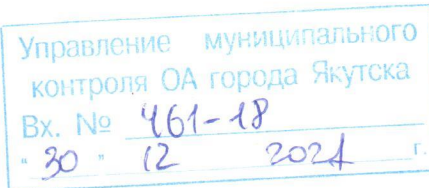 Управление муниципального
контроля ОА города Якутска
Вх. № 461-18
" 30 " 12 2021 г.